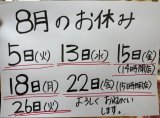 8月のお休み
5日(火) 13日(水) 15日(金)
(14時開店)
18日(月) 22日(金)
(15時開店)
26日(火) よろしくおねがい
します。